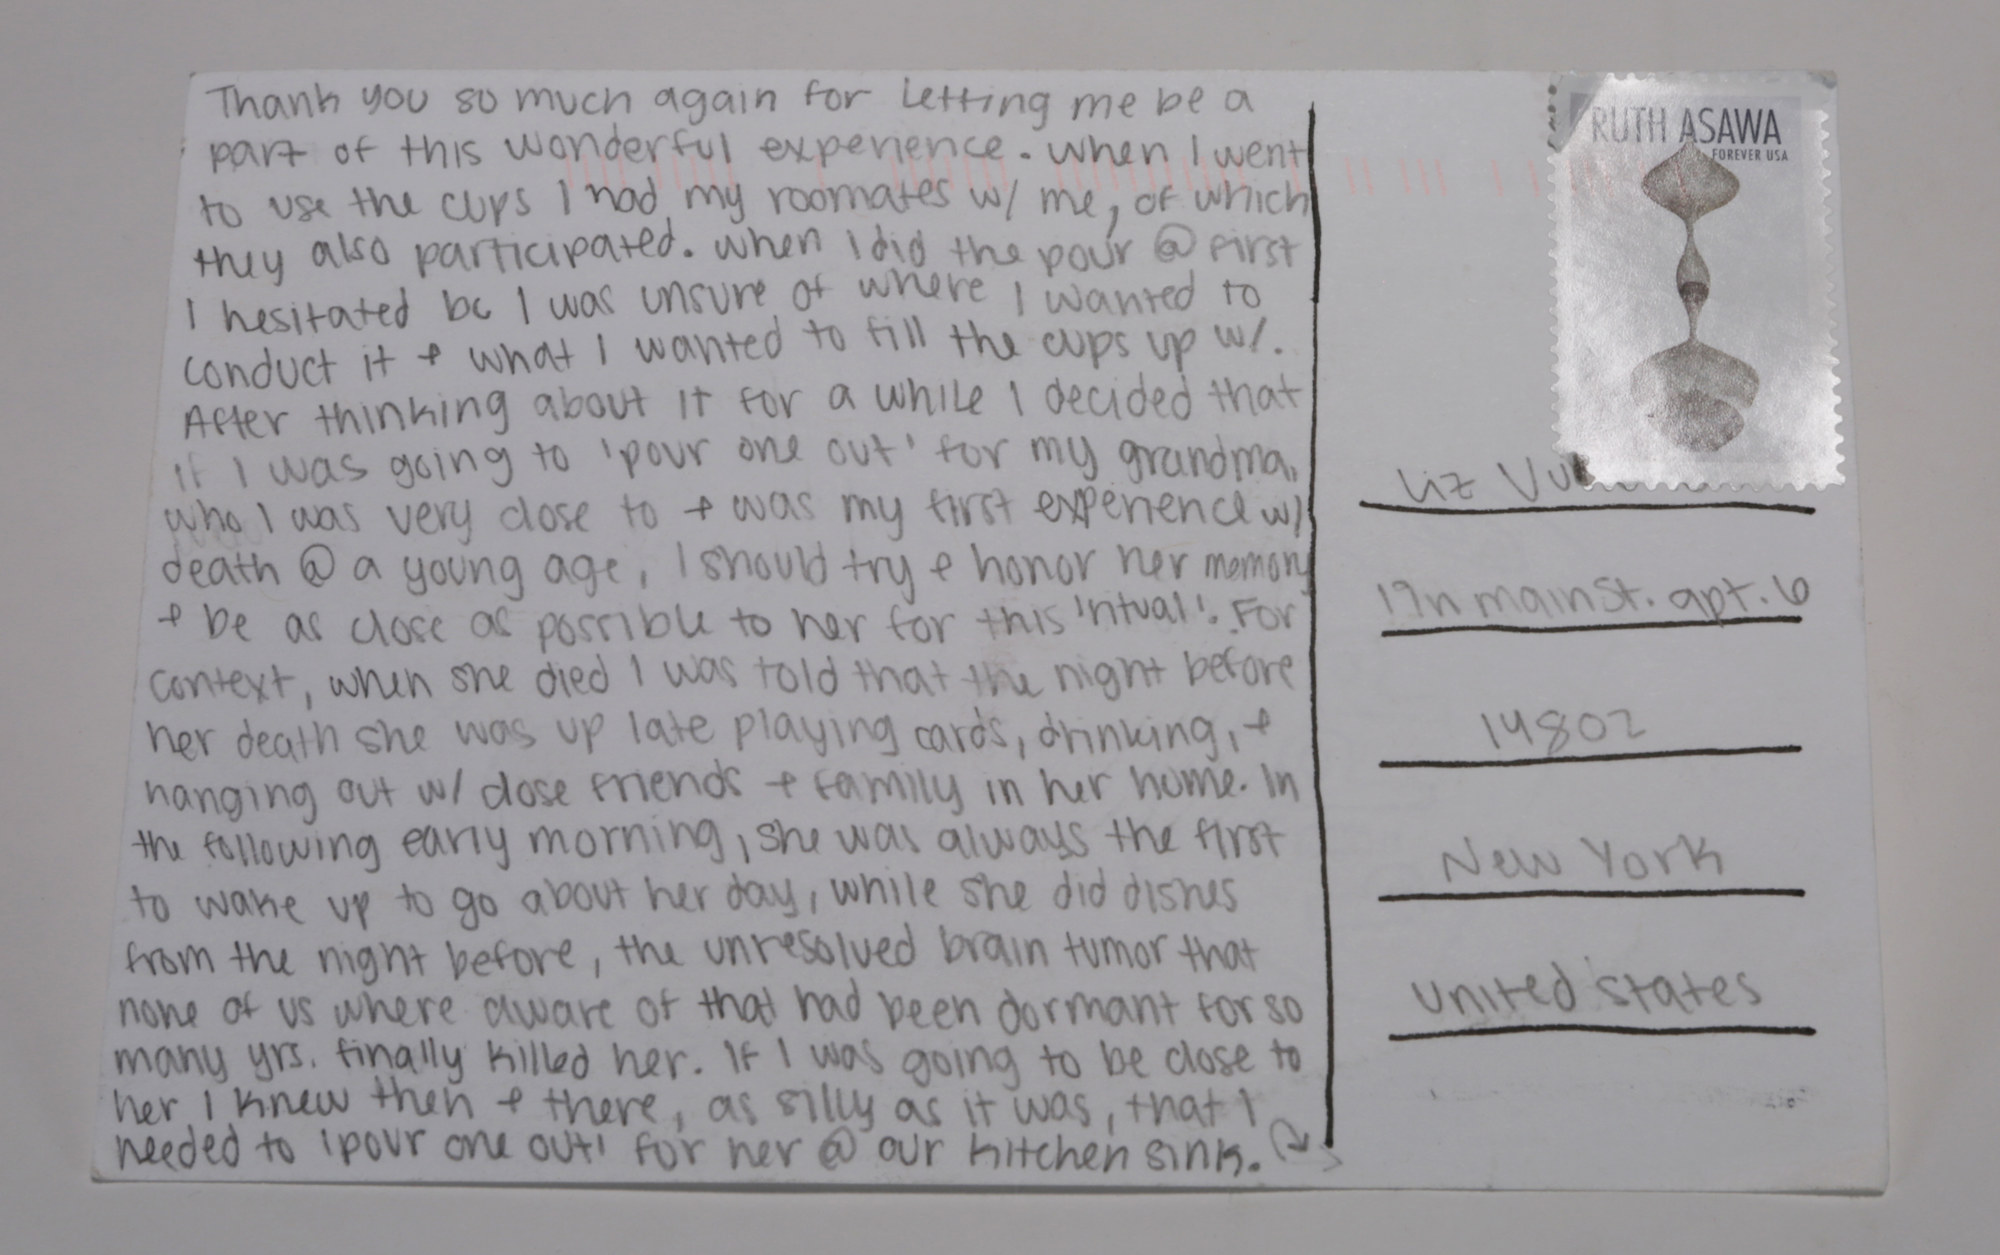 Thank you so much again for letting me be a
part of this wonderful experience. When I went
to use the cups I had my roomates w/ me, of which
they also participated. When I did the pour @ first
I hesitated bc I was unsure of where I wanted to
conduct it + what I wanted to fill the cups up w/.
After thinking about it for a while I decided that
if I was going to 'pour one out' for my grandma,
who I was very close to + was my first experience w/
death @ a young age, I should try + honor her memory
+ be as close as possible to her for this 'ritual'. For
context, when she died I was told that the night before
her death she was up late playing cards, drinking, +
hanging out w/ close friends + family in her home. In
the following early morning, she was always the first
to wake up to go about her day, while she did dishes
from the night before, the unresolved brain tumor that
none of us where aware of that had been dormant for so
many yrs. finally killed her. If I was going to be close to
her I knew then + there, as silly as it was, that I
needed to 'pour one out' for her @ our kitchen sink.
RUTH ASAWA
FOREVER USA
Liz
19n main St. apt. 6
14802
New York
United States